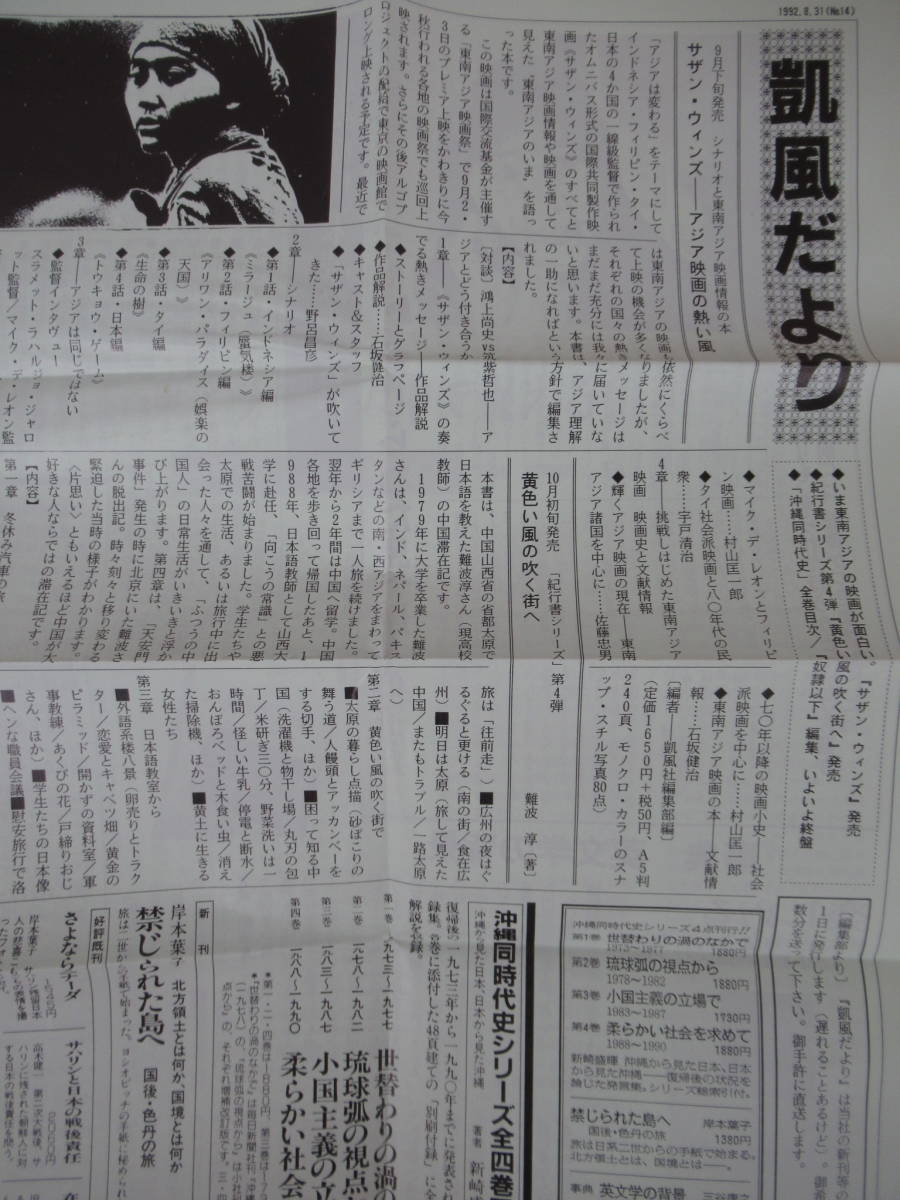 1992.8.31(No.14)
凱風だより
◆いま東南アジアの映画が面白い。『サザン・ウィンズ』発売
◆紀行書シリーズ第4弾『黄色い風の吹く街へ』発売
◆『沖縄同時代史』全巻目次/『奴隷以下』編集、いよいよ終盤
9月下旬発売 シナリオと東南アジア映画情報の本
サザン・ウィンズ——アジア映画の熱い風
「アジアは変わる」をテーマにして
インドネシア・フィリピン・タイ・
日本の4か国の一線級監督で作られ
たオムニバス形式の国際共同製作映
画《サザン・ウィンズ》のすべてと
東南アジア映画情報や映画を通して
見えた〝東南アジアのいま〟を語っ
った本です。
この映画は国際交流基金が主催す
る「東南アジア映画祭」で9月2・
3日のプレミア上映をかわきりに今
秋行われる各地の映画祭でも巡回上
映されます。さらにその後アルゴプ
ロジェクトの配給で東京の映画館で
ロング上映される予定です。最近で
は東南アジアの映画も依然にくらべ
て上映の機会が多くなりましたが、
それぞれの国々の熱きメッセージは
まだまだ充分には我々に届いていな
いと思います。本書は、アジア理解
の一助になればという方針で編集さ
れました。
【内容】
〔対談〕鴻上尚史vs筑紫哲也——ア
ジアとどう付き合うか
1章——《サザン・ウィンズ》の奏
でる熱きメッセージ——作品解説
◆ストーリーとグラフページ
◆作品解説……石坂健治
◆キャスト&スタッフ
◆「サザン・ウィンズ」が吹いて
きた……野呂昌彦
2章——シナリオ
◆第1話・インドネシア編
《ミラージュ(蜃気楼)》
◆第2話・フィリピン編
《アリワン・パラダイス(娯楽の
天国)》
◆第3話・タイ編
《生命の樹》
◆第4話・日本編
《トウキョウ・ゲーム》
3章——アジアは同じではない
◆監督インタヴュー
スラメット・ラハルジョ・ジャロ
ット監督/マイク・デ・レオン監
◆マイク・デ・レオンとフィリピ
ン映画……村山匡一郎
◆タイ社会派映画と八〇年代の民
衆……宇戸清治
4章 挑戦しはじめた東南アジア
映画 映画史と文献情報
◆輝くアジア映画の現在——東南
アジア諸国を中心に……佐藤忠男
◆七〇年以降の映画小史——社会
派映画を中心に……村山匡一郎
◆東南アジア映画の本——文献情
報……石坂健治
〔編者——凱風社編集部編〕
(定価1650円+税50円、A5判
240頁、モノクロ・カラーのスナ
ップ・スチル写真80点)
10月初旬発売 「紀行書シリーズ」第4弾
黄色い風の吹く街へ
難波 淳〔著〕
本書は、中国山西省の省都太原で
日本語を教えた難波淳さん(現高校
教師)の中国滞在記です。
1979年に大学を卒業した難波
さんは、インド、ネパール、パキス
タンなどの南・西アジアをまわって
ギリシアまで一人旅を続けました。
翌年から2年間は中国へ留学。中国
各地を歩き回って帰国したあと、1
988年、日本語教師として山西大
学に赴任、「向こうの常識」との悪
戦苦闘が始まりました。学生たちや
太原での生活、あるいは旅行中に出
会った人々を通して、〝ふつうの中
国人〟の日常生活がいきいきと浮か
び上がります。第四章は、「天安門
事件」発生の時に北京にいた難波さ
んの脱出記。時々刻々と移り変わる
緊迫した当時の様子がわかります。
〈片思い〉ともいえるほど中国が大
好きな人ならではの滞在記です。
【内容】
第一章 冬休み汽車の旅
旅は「往前走」/■広州の夜はぐ
るぐると更ける(南の街/食在広
州)■明日は太原(旅して見えた
中国/またもトラブル/一路太原
へ)
第二章 黄色い風の吹く街で
■太原の暮らし点描(砂ぼこりの
舞う道/人饅頭とアッカンベーを
する切手、ほか)■困って知る中
国(洗濯機と物干し場/丸刃の包
丁/米研ぎ三〇分、野菜洗いは一
時間/怪しい牛乳/停電と断水/
おんぼろベッドと木食い虫/消え
た掃除機、ほか)■黄土に生きる
女性たち
第三章 日本語教室から
■外語系楼八景(卵売りとトラク
ター/恋愛とキャベツ畑/黄金の
ピラミッド/開かずの資料室/軍
事教練/あくびの花/戸締りおじ
さん、ほか)■学生たちの日本像
■ヘンな職員会議■慰安旅行で洛
〔編集部より〕『凱風だより』は当社の新刊等
1日に発行します(遅れることあるけど)。御
数分を送って下さい。御手許に直送します。
沖縄同時代史シリーズ4点刊行!!
第1巻 世替わりの渦のなかで
1973~1977 1880円
第2巻 琉球弧の視点から
1978~1982 1880円
第3巻 小国主義の立場で
1983~1987 1730円
第4巻 柔らかい社会を求めて
1988~1990 1880円
新崎盛暉 沖縄から見た日本、日本
から見た沖縄——復帰後の状況を
論じた発言集。シリーズ総索引付。
禁じられた島へ 岸本葉子
国後・色丹の旅 1380円
旅は日系二世からの手紙で始まる。
北方領土とは、国境とは——。
事典 英文学の背景
沖縄同時代史シリーズ全四巻
沖縄から見た日本、日本から見た沖縄
著者 新崎
復帰後の一九七三年から一九九〇年までに発表され
録集。各巻に添付した48頁建ての「別刷付録」に全
解説を登録。
第一巻 一九七三~一九七七 世替わりの渦の
第二巻 一九七八~一九八二 琉球弧の視点
第三巻 一九八三~一九八七 小国主義の立
第四巻 一九八八~一九九〇 柔らかい社会
新刊
岸本葉子 北方領土とは何か、国境とは何か
禁じられた島へ 国後・色丹の旅
好評既刊
さよならテーダ
岸本葉子
サハリンと日本の戦後責任
高木健一